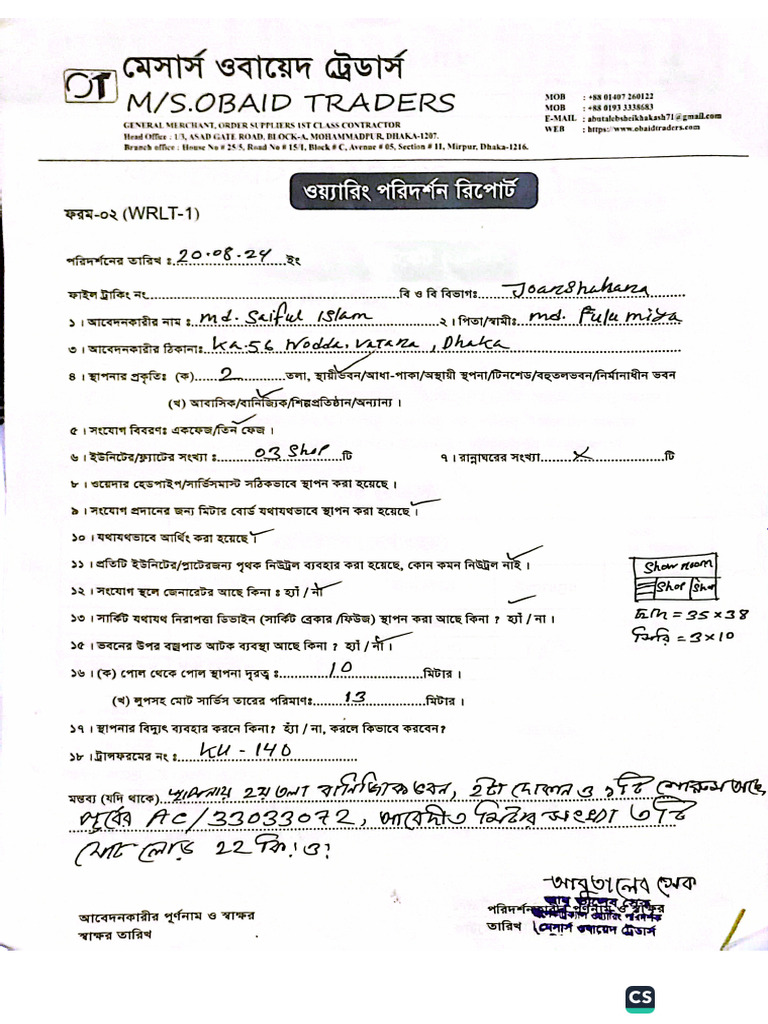 OT
মেসার্স ওবায়েদ ট্রেডার্স
M/S.OBAID TRADERS
GENERAL MERCHANT, ORDER SUPPLIERS 1ST CLASS CONTRACTOR
Head Office : 1/3, ASAD GATE ROAD, BLOCK-A, MOHAMMADPUR, DHAKA-1207.
Branch office : House No # 25/5, Road No # 15/1, Block # C, Avenue # 05, Section # 11, Mirpur, Dhaka-1216.
MOB : +88 01407 260122
MOB : +88 0193 3338683
E-MAIL : abutalebsheikhakash71@gmail.com
WEB : https://www.obaidtraders.com
ওয়্যারিং পরিদর্শন রিপোর্ট
ফরম-০২ (WRLT-1)
পরিদর্শনের তারিখ ঃ 20.08.24 ইং
ফাইল ট্রাকিং নং বি ও বি বিভাগঃ Joarshahara
১। আবেদনকারীর নাম ঃ md. Saiful Islam ২। পিতা/স্বামীঃ md. Fulu miya
৩। আবেদনকারীর ঠিকানাঃ Ka-56 Nodda, Vatara, Dhaka
৪। স্থাপনার প্রকৃতিঃ (ক) 2 তলা, স্থায়ীভবন/আধা-পাকা/অস্থায়ী স্থপনা/টিনশেড/বহুতলভবন/নির্মানাধীন ভবন
(খ) আবাসিক/বানিজ্যিক/শিল্পপ্রতিষ্ঠান/অন্যান্য ।
৫। সংযোগ বিবরণঃ একফেজ/তিন ফেজ ।
৬। ইউনিটের/ফ্ল্যাটের সংখ্যা ঃ 03 Shop টি ৭। রান্নাঘরের সংখ্যা x টি
৮। ওয়েদার হেডপাইপ/সার্ভিসমাস্ট সঠিকভাবে স্থাপন করা হয়েছে ।
৯। সংযোগ প্রদানের জন্য মিটার বোর্ড যথাযথভাবে স্থাপন করা হয়েছে ।
১০। যথাযথভাবে আর্থিং করা হয়েছে ।
১১। প্রতিটি ইউনিটের/প্লাটেরজন্য পৃথক নিউট্রল ব্যবহার করা হয়েছে, কোন কমন নিউট্রল নাই ।
১২। সংযোগ স্থলে জেনারেটর আছে কিনা ঃ হ্যাঁ / না
১৩। সার্কিট যথাযথ নিরাপত্তা ডিভাইন (সার্কিট ব্রেকার /ফিউজ) স্থাপন করা আছে কিনা ? হ্যাঁ / না ।
Show room
Shop Shop
= 35 x 38
সিঁড়ি = 3 x 10
১৫। ভবনের উপর বজ্রপাত আটক ব্যবস্থা আছে কিনা ? হ্যাঁ / না ।
১৬। (ক) পোল থেকে পোল স্থাপনা দূরত্ব ঃ 10 মিটার ।
(খ) লুপসহ মোট সার্ভিস তারের পরিমাণঃ 13 মিটার ।
১৭। স্থাপনার বিদ্যুৎ ব্যবহার করনে কিনা? হ্যাঁ / না, করলে কিভাবে করবেন?
১৮। ট্রান্সফরমের নং ঃ KU - 140
মন্তব্য (যদি থাকে) স্থাপনায় ২য় তলা বানিজ্যিক ভবন, ২টা দোকান ও ১টি শোরুম আছে,
পূর্বের AC/33033072, আবেদীত মিটার সংখ্যা ৩টি
মোট লোড 22 কি:ও?
আবুতালেব সেক
আবেদনকারীর পূর্ণনাম ও স্বাক্ষর
স্বাক্ষর তারিখ
পরিদর্শনকারীর পূর্ণনাম ও স্বাক্ষর
তারিখ
মেসার্স ওবায়েদ ট্রেডার্স
CS